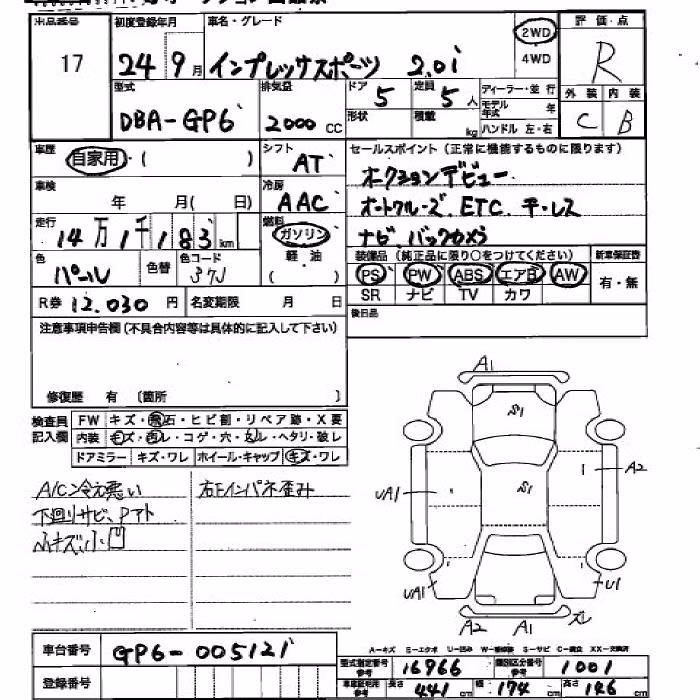 出品番号 初度登録年月 車名・グレード 2WD 4WD 評価・点
17 24 9月 インプレッサスポーツ 2.0i R
型式 排気量 ドア 定員 ディーラー・並行 外装 内装
DBA-GP6 2000 CC 5 5人 モデル年式 年 C B
形状 積載 kg ハンドル 左・右
車歴 シフト セールスポイント(正常に機能するものに限ります)
自家用・( ) AT オークションデビュー
車検 冷房
年 月( 日) AAC オートクルーズ、ETC、キーレス
走行 燃料
14万1千183km ガソリン ナビ、バックカメラ
色 色替 色コード 軽油 装備品(純正品に限り○をつけてください) 新車保証書
パール 37J ( ) PS PW ABS エアB AW 有・無
SR ナビ TV カワ
R券 12,030円 名変期限 月 日 後日品
注意事項申告欄(不具合内容等は具体的に記入して下さい)
修復歴 有 〔箇所 〕
検査員記入欄 FW キズ・飛石・ヒビ割・リペア跡・X要
内装
ドアミラー キズ・ワレ ホイール・キャップ キズ・ワレ
A/C冷え悪い 右下インパネ歪み
下廻りサビ、Pマト
小キズ、小凹
A1
S1
A2
UA1 S1
UA1 U1
A2 A1 ズレ
A-キズ S-エクボ U-凹み W-補修跡 S-サビ C-腐食 XX-交換済
車台番号 GP6-005121 型式指定番号 参考 16966 類別区分番号 参考 1001
登録番号 長さ 441cm 幅 174cm 高さ 146cm